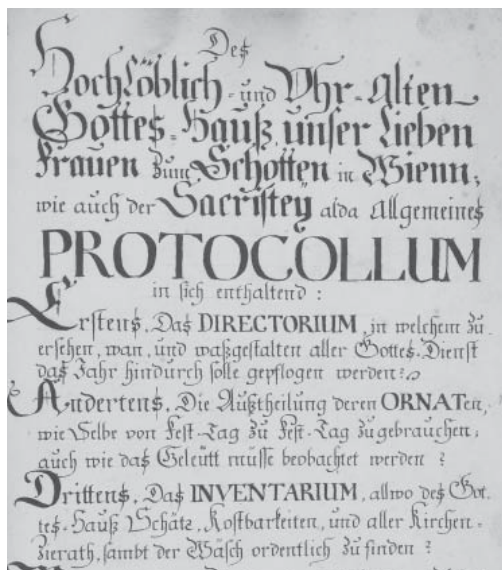 Des
HochLöblich- und Vhr-Alten
Gottes-Hauß, unser Lieben
Frauen zum Schotten in Wienn,
wie auch der Sacristey alda Allgemeines
PROTOCOLLUM
in sich enthaltend:
Erstens, Das DIRECTORIUM, in welchem zu
ersehen, wan, und waßgestalten aller Gottes-Dienst
das Jahr hindurch solle gepflogen werden:
Andertens, Die Außtheilung deren ORNATen,
wie Selbe von Fest-Tag zu Fest-Tag zugebrauchen,
auch wie das Geleütt müsse beobachtet werden:
Drittens, Das INVENTARIUM, allwo des Got-
tes-Hauß Schätz, Kostbarkeiten, und aller Kirchen-
Zierath, sambt der Wäsch ordentlich zu finden: